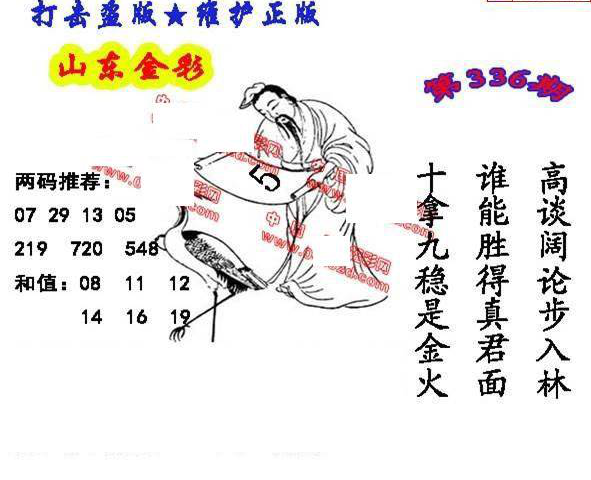 打击盗版★维护正版
山东金彩
第336期
两码推荐：
07 29 13 05
219 720 548
和值：08 11 12
14 16 19
5
高谈阔论步入林
谁能胜得真君面
十拿九稳是金火